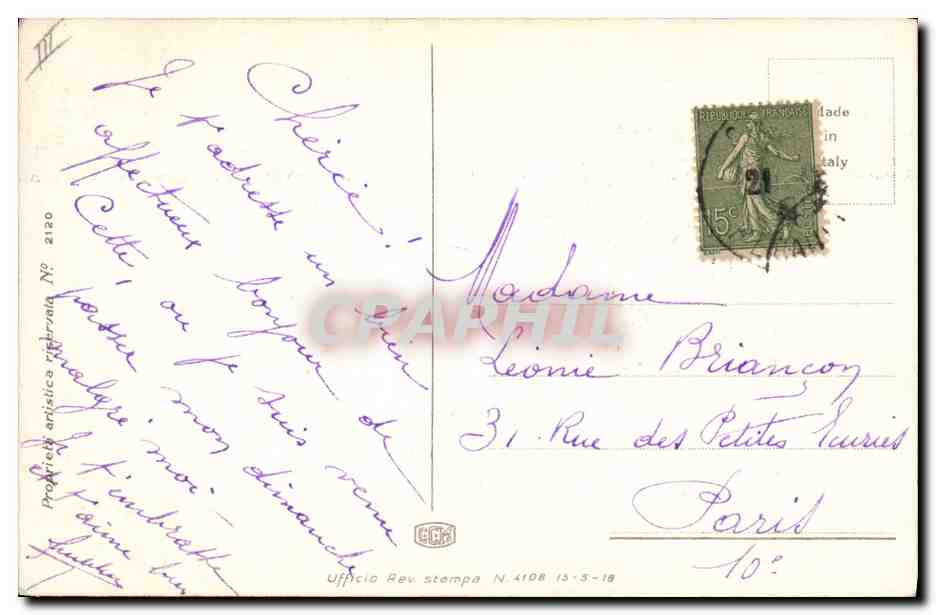 III
Chérie!
Je t'adresse un bien
affectueux bonjour de
Cette où je suis venue
passer mon dimanche
malgré moi.
Je t'embrasse
et t'aime bien
Proprietà artistica riservata Nº 2120
Made
in
Italy
REPUBLIQUE FRANÇAISE
21
15c
POSTES
CPARPHIL
Madame
Léonie Briançon
31. Rue des Petites Ecuries
Paris
10e
CCM
Ufficio Rev. stampa N. 4108 15-5-18